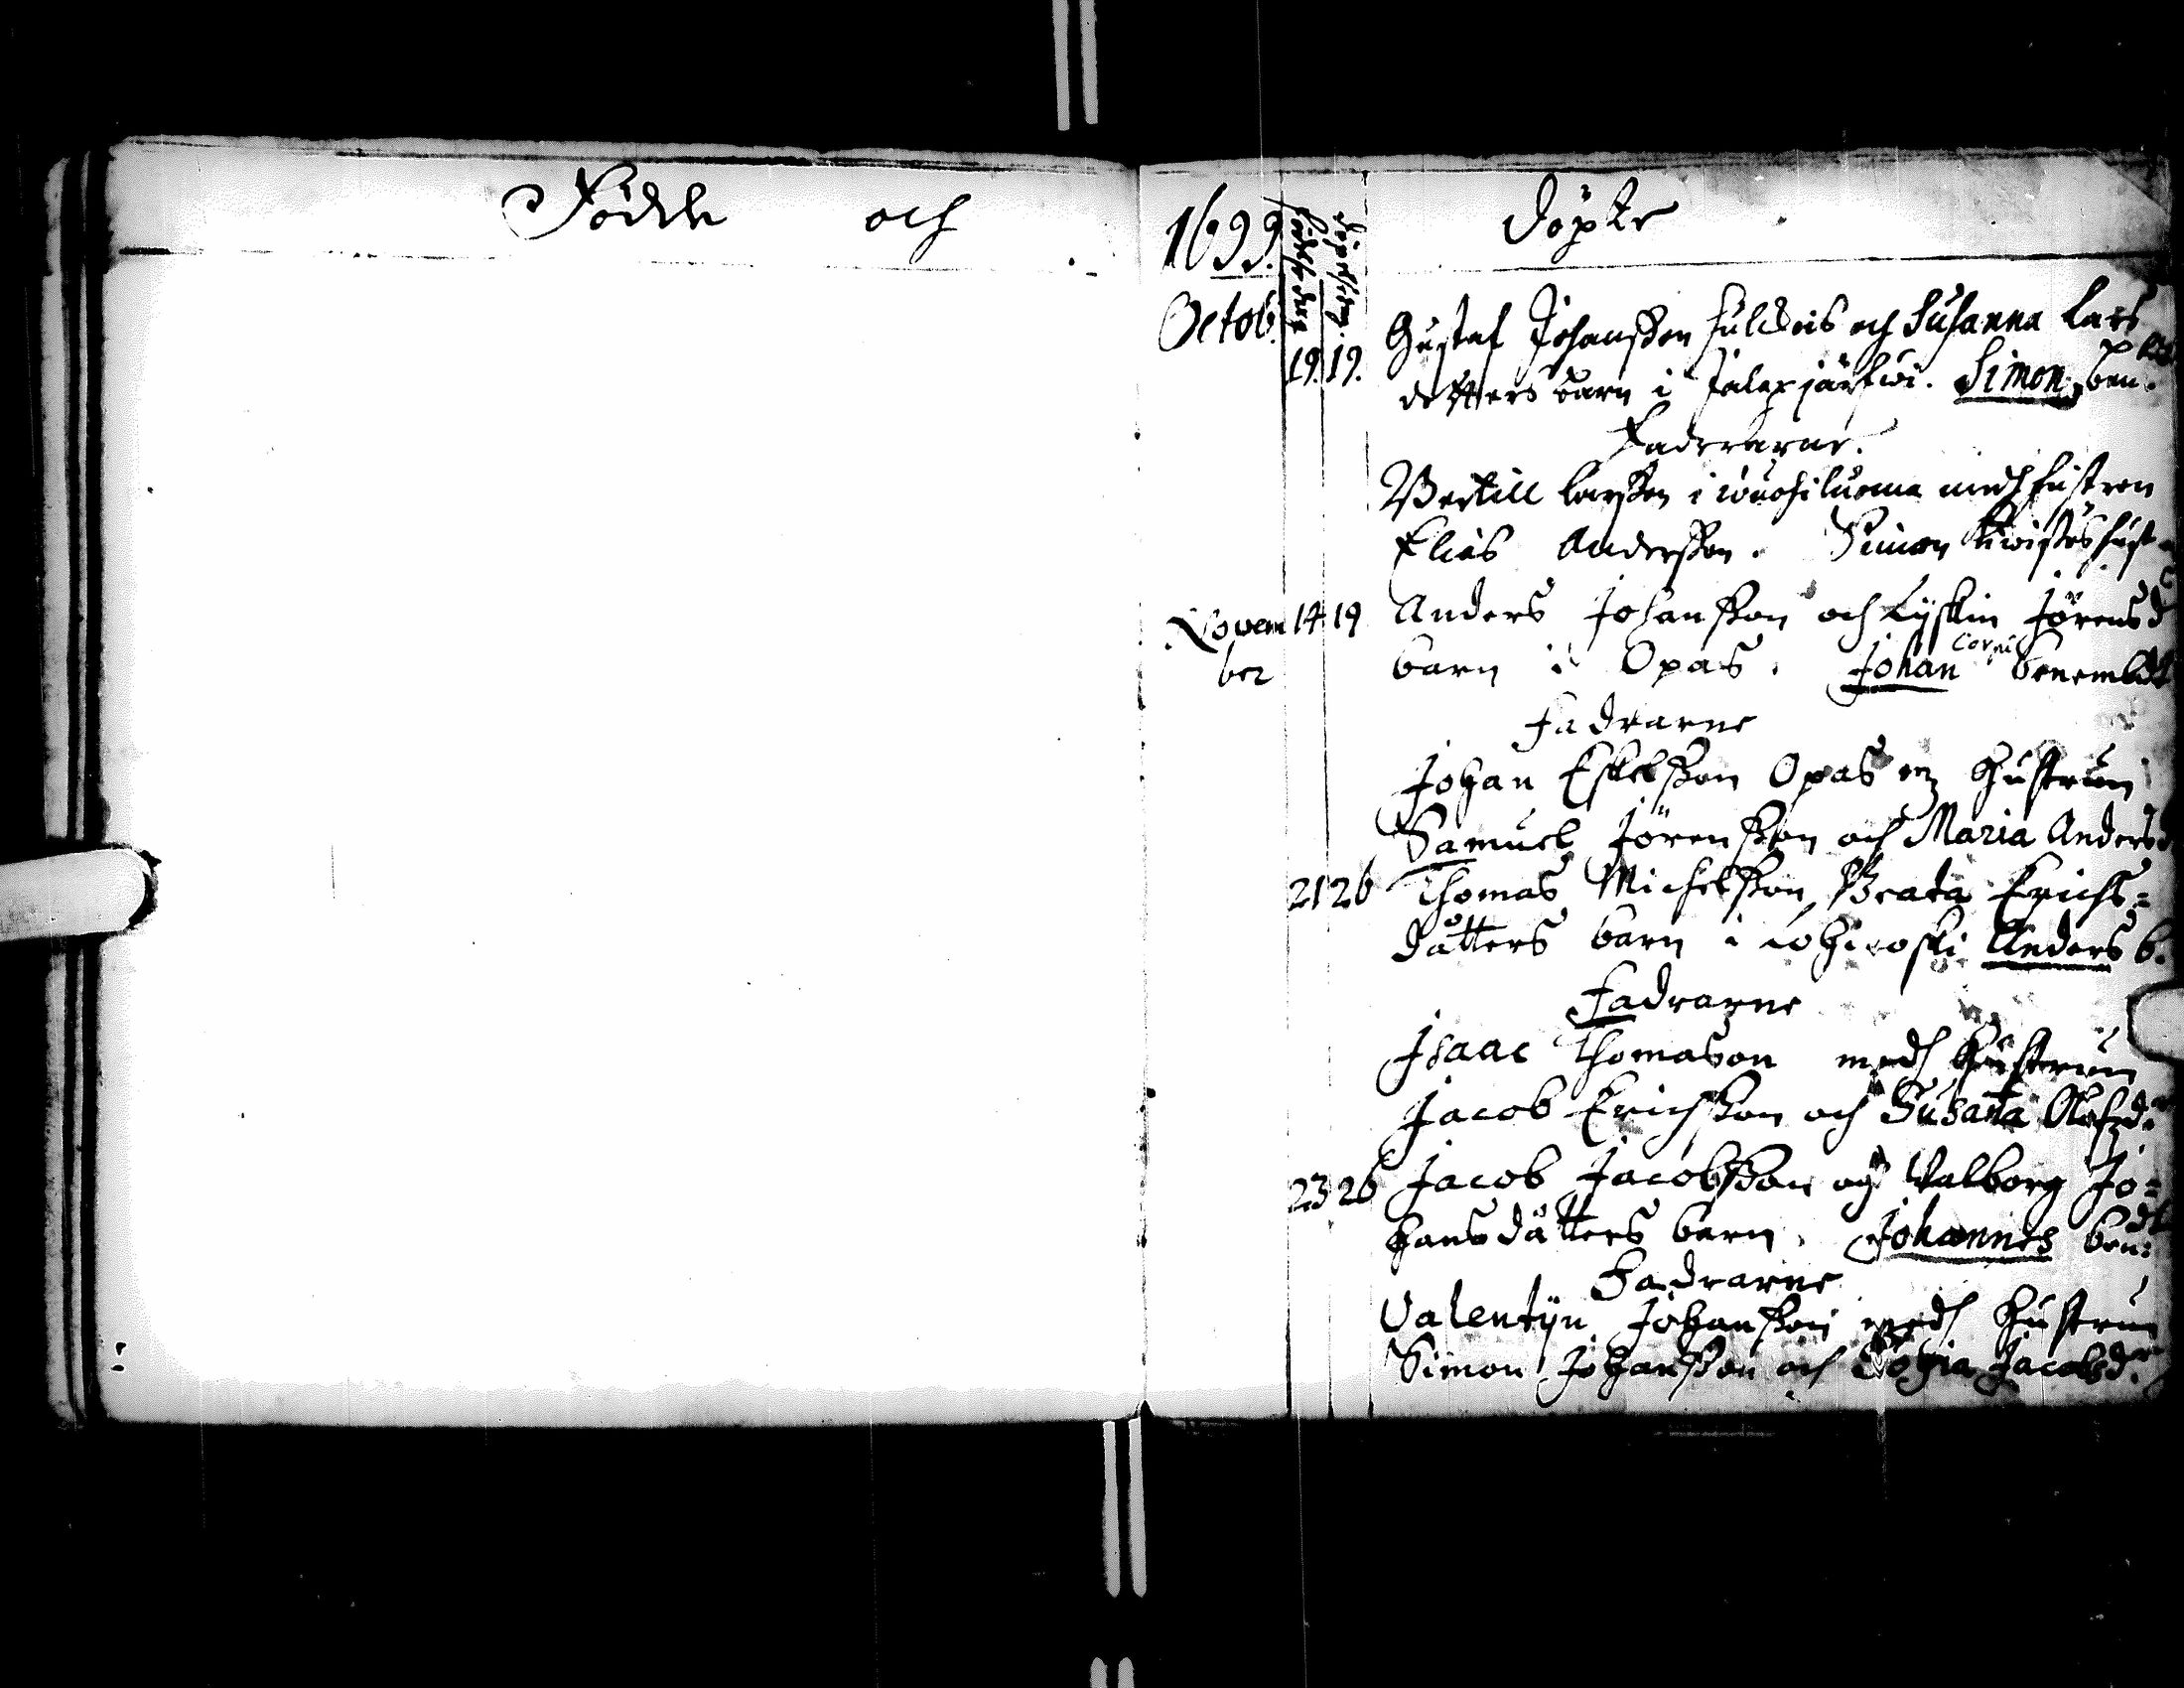 Födde och
1699. Födelse dag Döpelse dag Döpte
Octob.
19. 19. Gustaf Johansson och Susanna Lars
dotters barn i Jalaxjärfwi. Simon ben.
Fadrarne.
Bertill Larsson i medh hustron
Elias Andersson. Simon hust
Novem 14 19 Anders Johansson och Lyskin Jörensd
ber barn i Opas. Johan benembdt
Fadrarne
Johan Eskelsson Opas m hustrun
Samuel Jörensson och Maria Andersd
21 26 Thomas Michelsson, Beata Erichs=
dåtters barn i Anders b.
Fadrarne
Isaac Thomason medh hustrun
Jacob Erichsson och Susana Olofzd.
23 26 Jacob Jacobsson och Walborg Jo=
hansdåtters barn. Johannes ben: dt
Fadrarne
Valentijn Johansson medh hustrun
Simon Johansson och Jacobsdr.